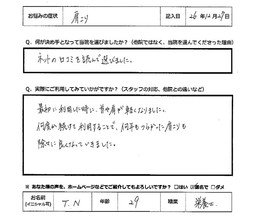 お悩みの症状 肩こり 記入日 26年12月27日
Q. 何が決め手となって当院を選びましたか?(他院ではなく、当院を選んでくださった理由)
ネットの口コミを読んで選びました。
Q. 実際にご利用してみていかがですか?(スタッフの対応、他院との違いなど)
最初に利用した時に、首や肩が軽くなりました。
何度か続けて利用することで、何年もつらかった肩こりも
徐々に良くなっていきました。
※ あなた様の声を、ホームページなどでご紹介してもよろしいですか? □はい ☑匿名で □ダメ
お名前(イニシャル可) T.N 年齢 29 職業 栄養士